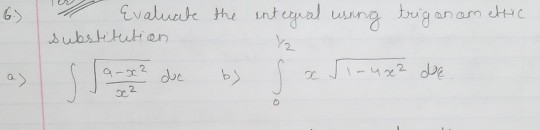 6.) Evaluate the integral using trigonamettic
substitution
a) ∫ √(9-x²/x²) dx b) ∫₀^{1/2} x √(1-4x²) dx